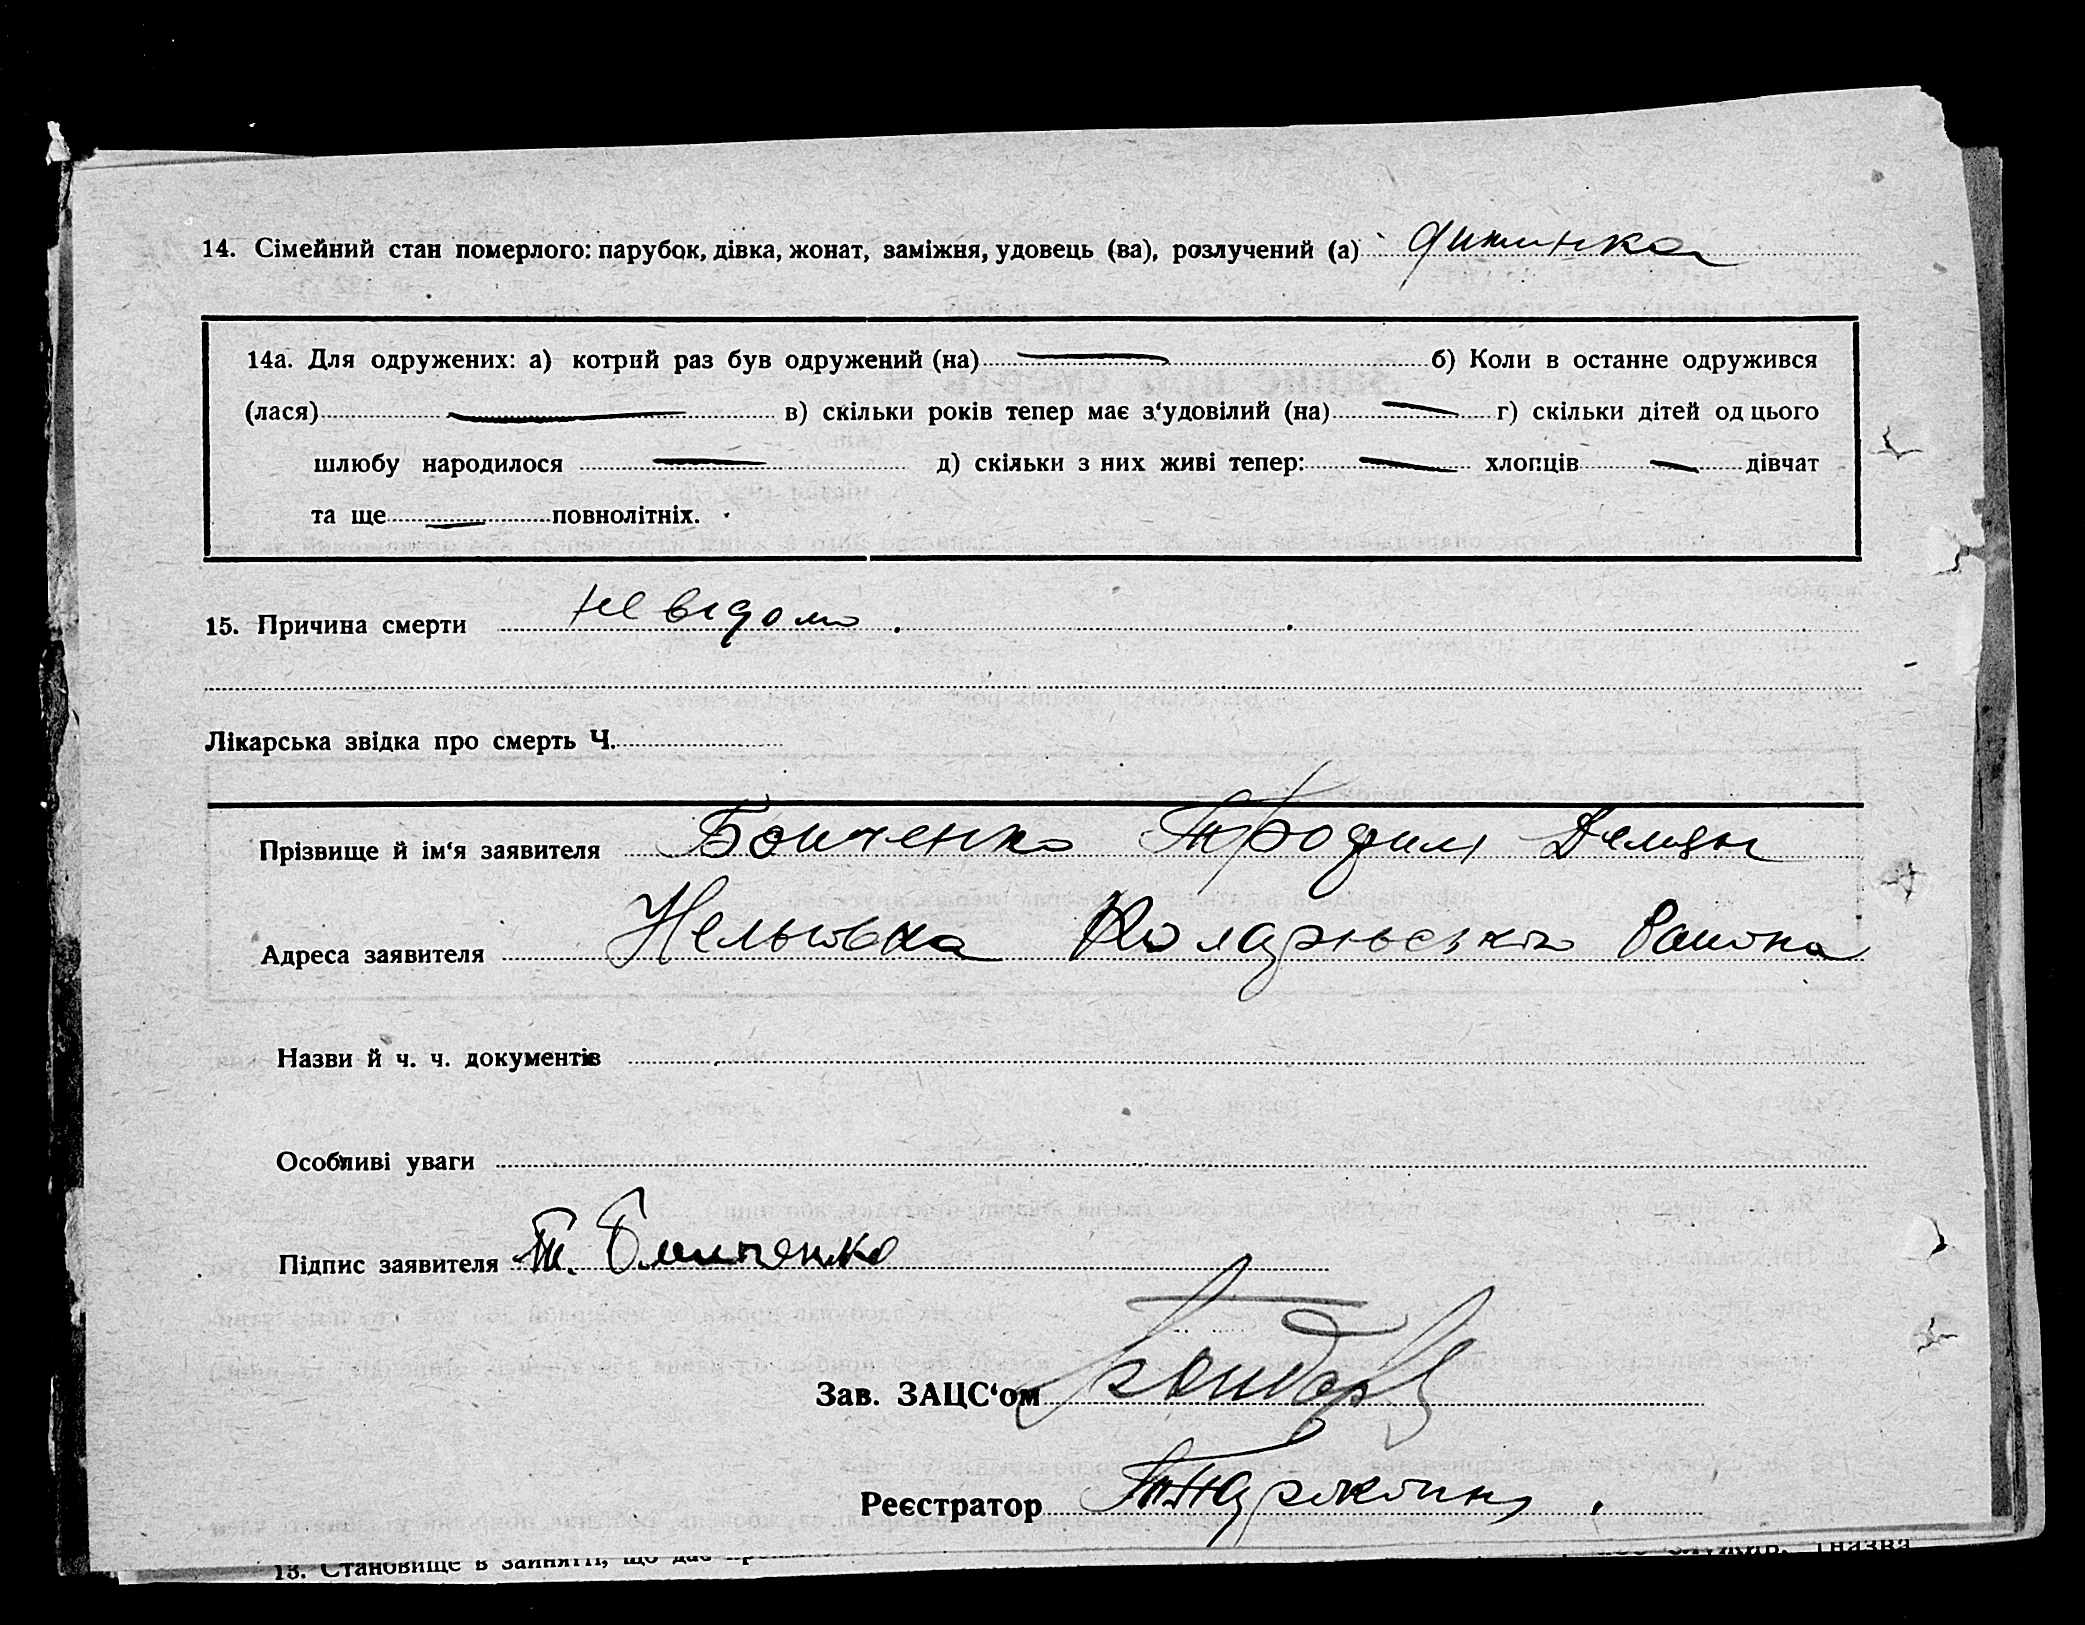 14. Сімейний стан померлого: парубок, дівка, жонат, заміжня, удовець (ва), розлучений (а) дитинка
14а. Для одружених: а) котрий раз був одружений (на) — б) Коли в останнє одружився
(лася) — в) скільки років тепер має з‘удовілий (на) — г) скільки дітей од цього
шлюбу народилося — д) скільки з них живі тепер: — хлопців — дівчат
та ще — повнолітніх.
15. Причина смерти не відомо.
Лікарська звідка про смерть Ч.
Прізвище й ім‘я заявителя Бойченко Трофим
Адреса заявителя Нельговка району
Назви й ч. ч. документів
Особливі уваги
Підпис заявителя Т. Бойченко
Зав. ЗАЦС‘ом
Реєстратор
13. Становище в занятті, що дає